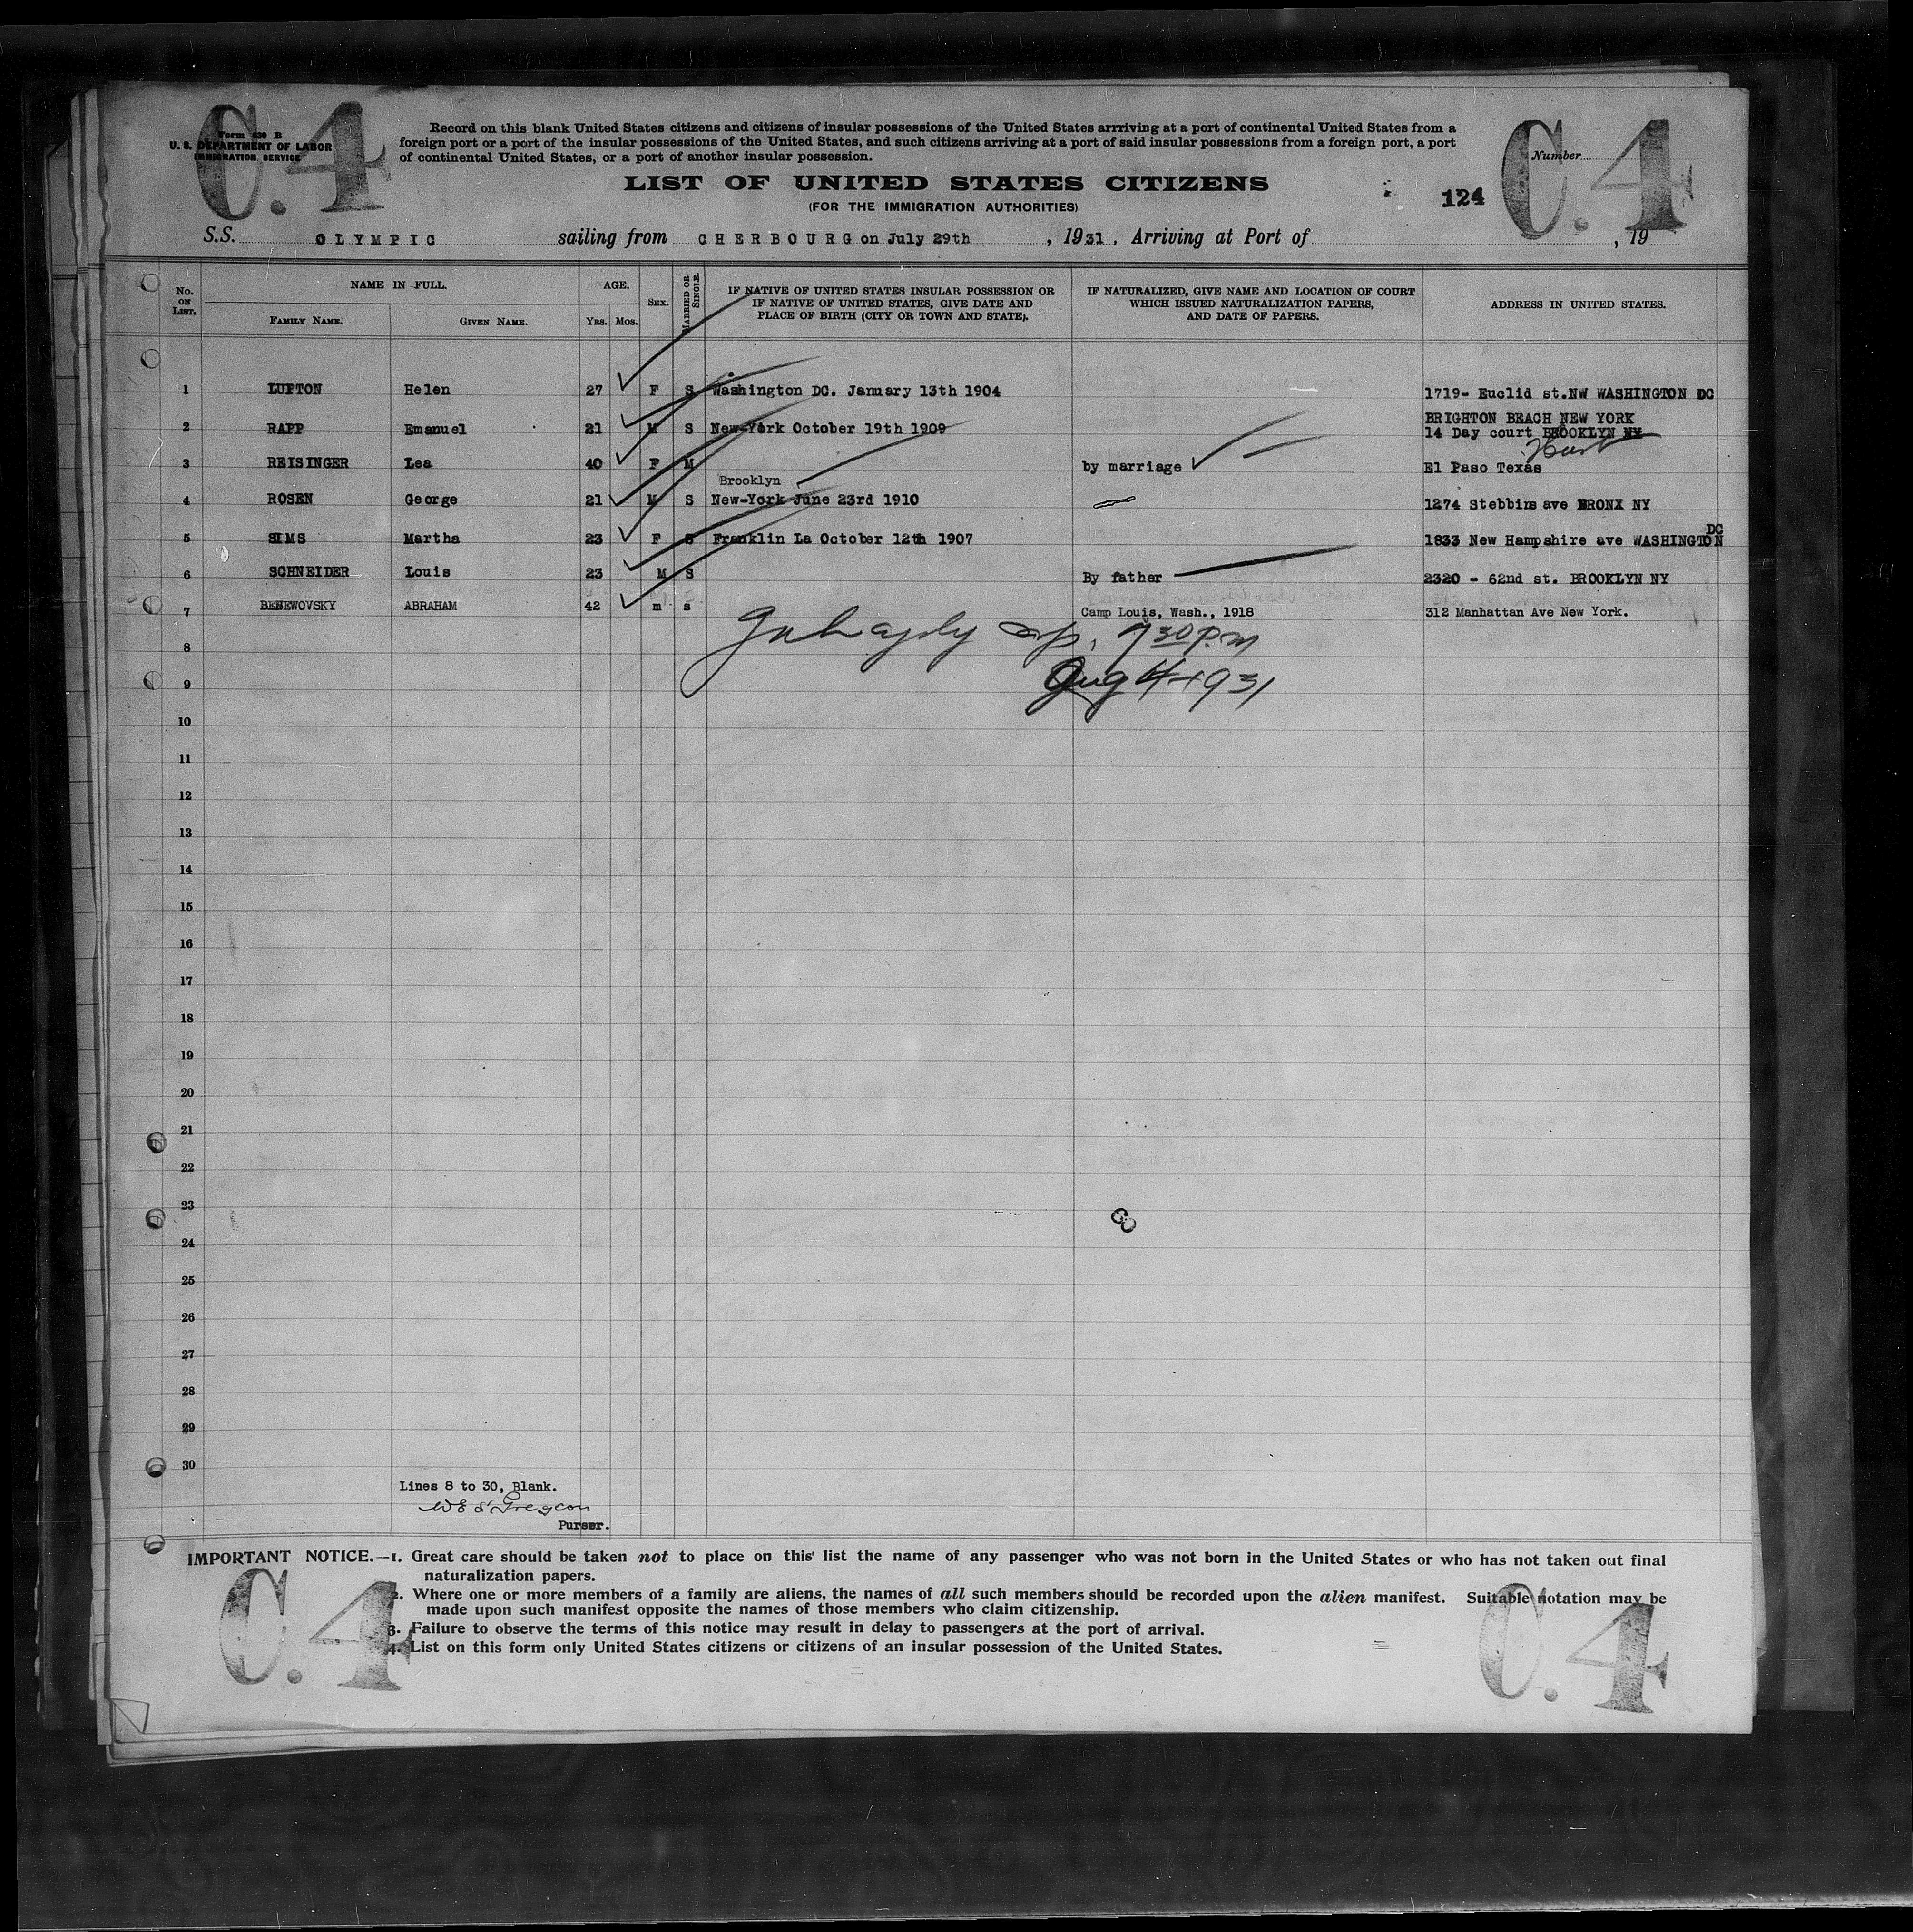 C.4
C.4
Form 630 B
U. S. DEPARTMENT OF LABOR
IMMIGRATION SERVICE
Record on this blank United States citizens and citizens of insular possessions of the United States arrriving at a port of continental United States from a
foreign port or a port of the insular possessions of the United States, and such citizens arriving at a port of said insular possessions from a foreign port, a port
of continental United States, or a port of another insular possession.
Number
LIST OF UNITED STATES CITIZENS
(FOR THE IMMIGRATION AUTHORITIES)
124
S.S. OLYMPIC sailing from CHERBOURG on July 29th, 1931, Arriving at Port of , 19
No. ON LIST.
NAME IN FULL.
FAMILY NAME. GIVEN NAME.
AGE.
YRS. MOS.
SEX.
MARRIED OR SINGLE.
IF NATIVE OF UNITED STATES INSULAR POSSESSION OR
IF NATIVE OF UNITED STATES, GIVE DATE AND
PLACE OF BIRTH (CITY OR TOWN AND STATE).
IF NATURALIZED, GIVE NAME AND LOCATION OF COURT
WHICH ISSUED NATURALIZATION PAPERS,
AND DATE OF PAPERS.
ADDRESS IN UNITED STATES.
1 LUPTON Helen 27 F S Washington DC. January 13th 1904 1719- Euclid st.NW WASHINGTON DC
BRIGHTON BEACH NEW YORK
2 RAPP Emanuel 21 M S New-York October 19th 1909 14 Day court BROOKLYN NY
3 REISINGER Lea 40 F M by marriage El Paso Texas
Brooklyn
4 ROSEN George 21 M S New-York June 23rd 1910 1274 Stebbins ave BRONX NY
DC
5 SIMS Martha 23 F S Franklin La October 12th 1907 1833 New Hampshire ave WASHINGTON
6 SCHNEIDER Louis 23 M S By father 2320 - 62nd st. BROOKLYN NY
7 BEHEWOVSKY ABRAHAM 42 m s Camp Louis, Wash., 1918 312 Manhattan Ave New York.
8
730 P.M
9
Aug 4-1931
10
11
12
13
14
15
16
17
18
19
20
21
22
23
24
25
26
27
28
29
30
Lines 8 to 30, Blank.
Purser.
IMPORTANT NOTICE.—1. Great care should be taken not to place on this list the name of any passenger who was not born in the United States or who has not taken out final
naturalization papers.
2. Where one or more members of a family are aliens, the names of all such members should be recorded upon the alien manifest. Suitable notation may be
made upon such manifest opposite the names of those members who claim citizenship.
3. Failure to observe the terms of this notice may result in delay to passengers at the port of arrival.
4. List on this form only United States citizens or citizens of an insular possession of the United States.
C.4
C.4